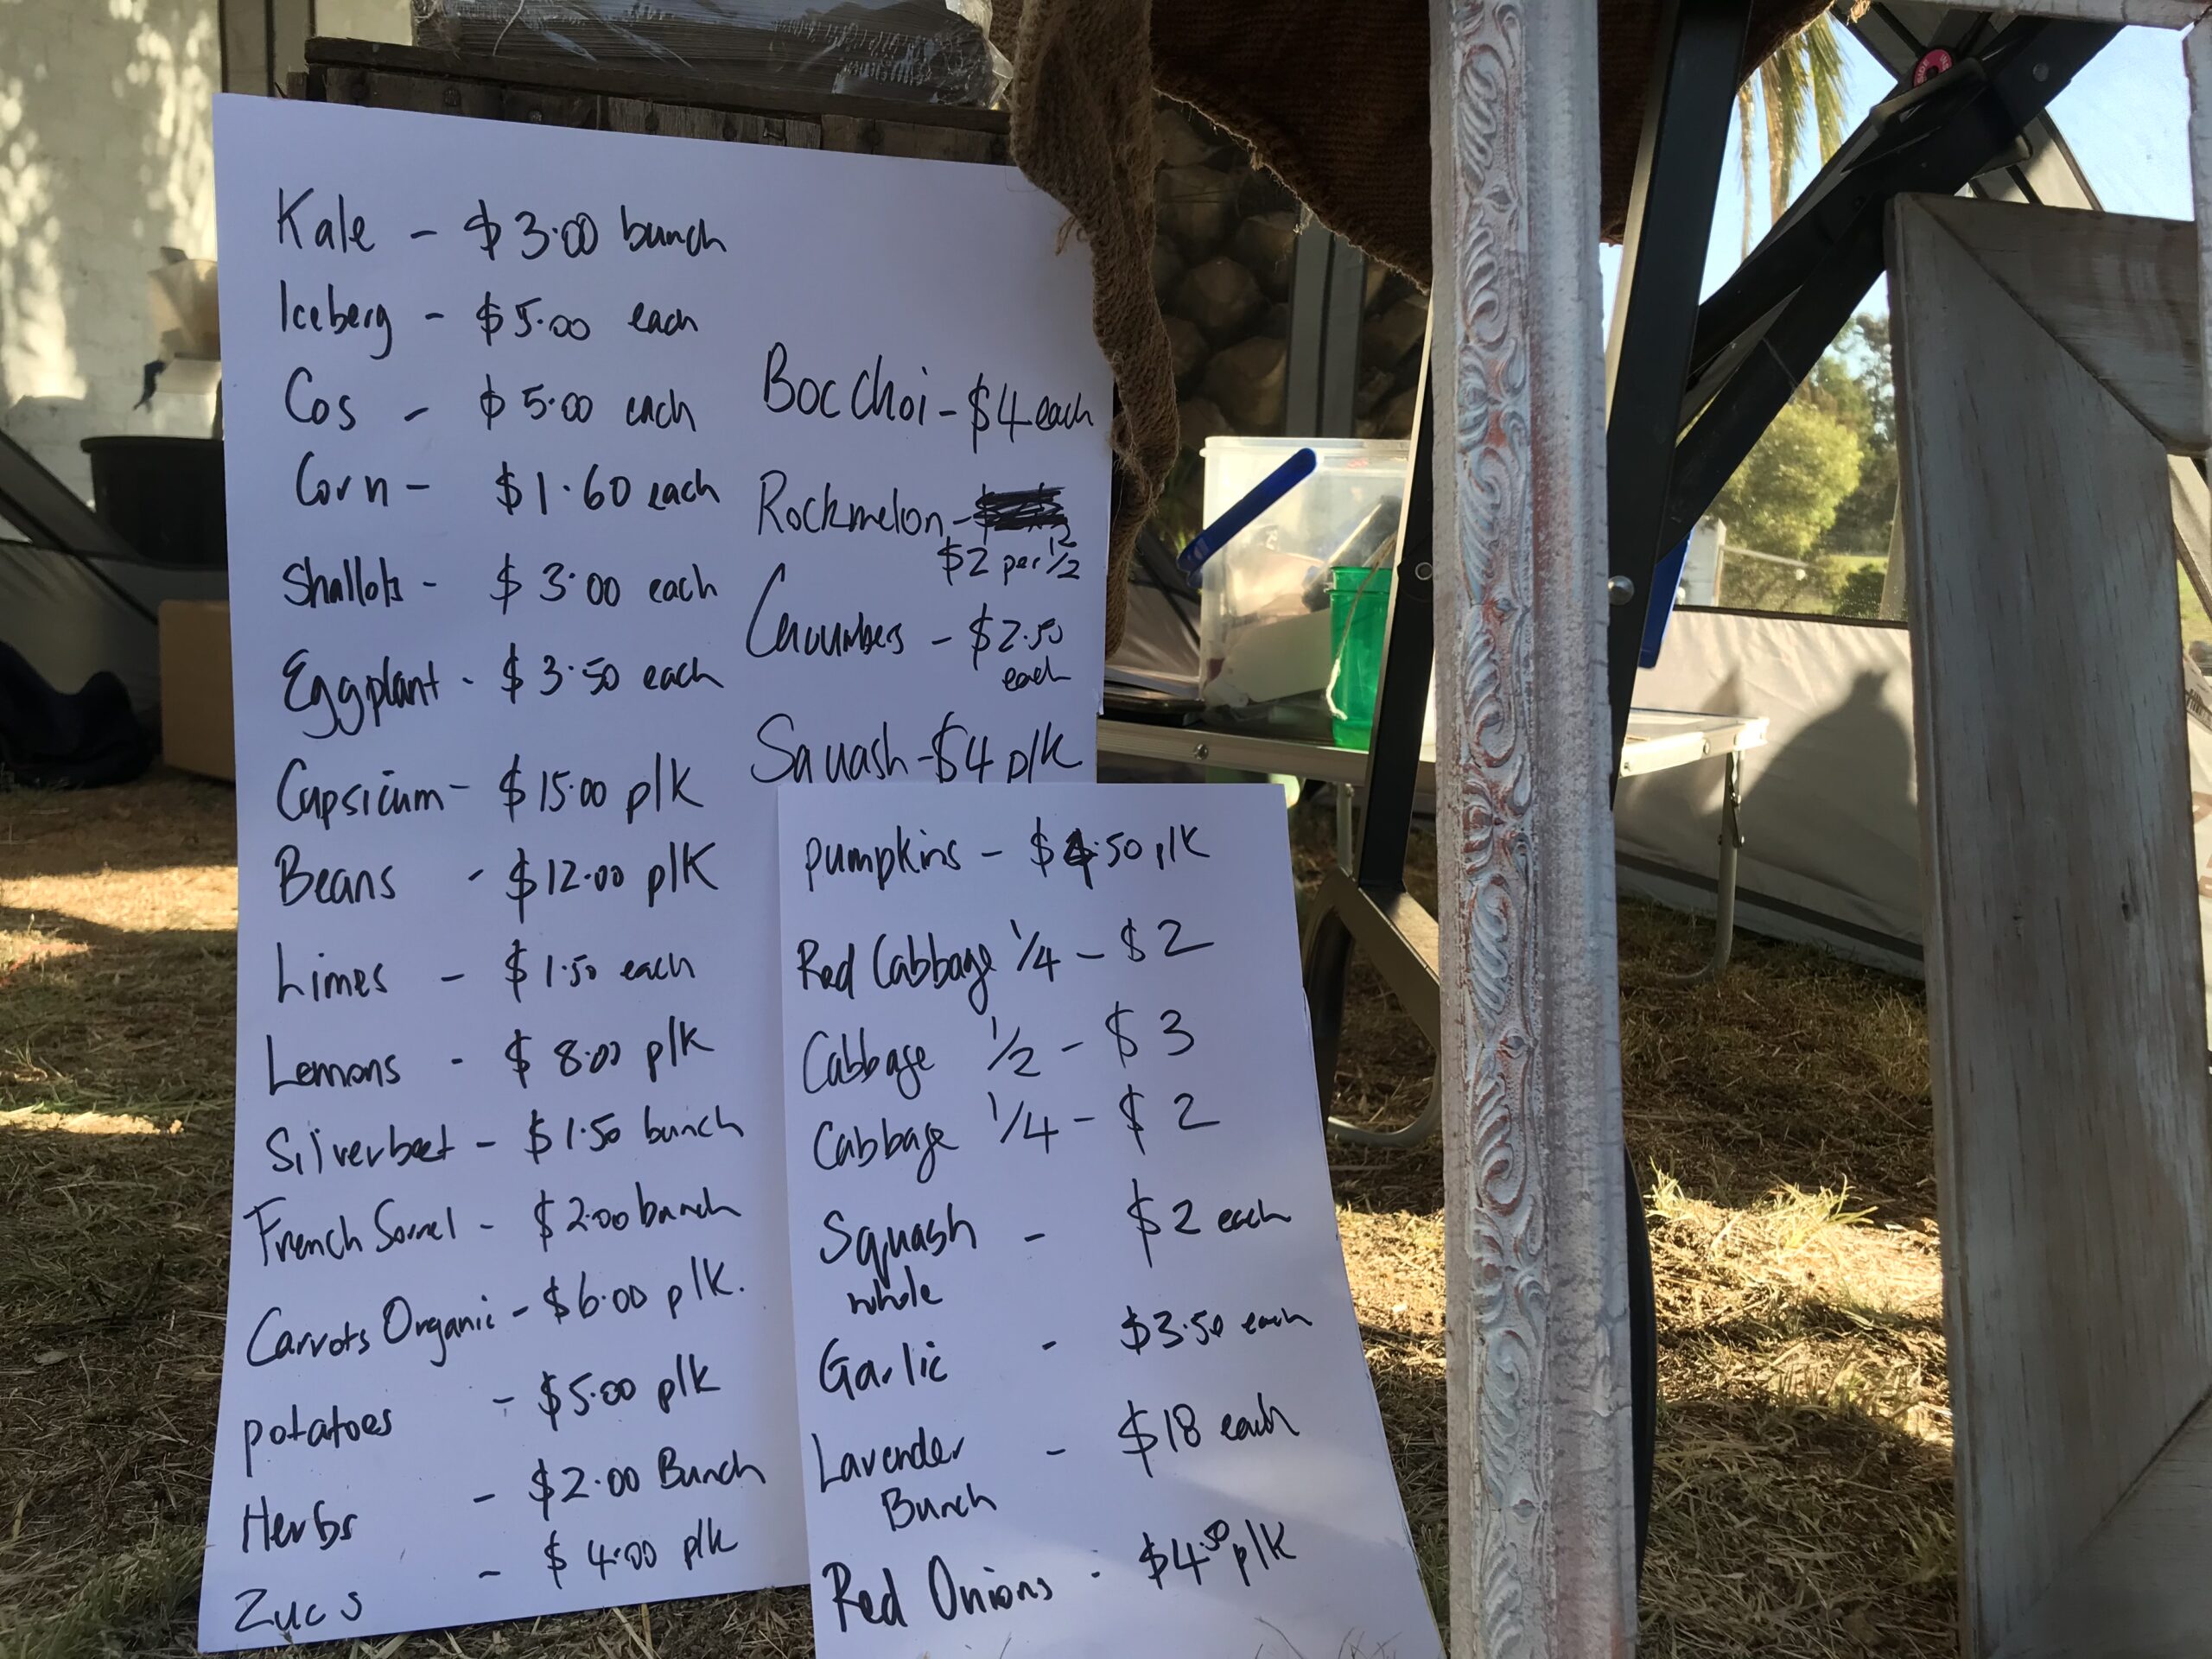 Kale - $3.00 bunch
Iceberg - $5.00 each
Cos - $5.00 each
Corn - $1.60 each
Shallots - $3.00 each
Eggplant - $3.50 each
Capsicum - $15.00 p/K
Beans - $12.00 p/K
Limes - $1.50 each
Lemons - $8.00 p/K
Silverbeet - $1.50 bunch
French Sorrel - $2.00 bunch
Carrots Organic - $6.00 p/K.
potatoes - $5.00 p/K
Herbs - $2.00 Bunch
Zucs - $4.00 p/K
Boc Choi - $4 each
Rockmelon -
$2 per 1/2
Cucumbers - $2.50
each
Squash - $4 p/K
pumpkins - $4.50 p/K
Red Cabbage 1/4 - $2
Cabbage 1/2 - $3
Cabbage 1/4 - $2
Squash - $2 each
whole
Garlic - $3.50 each
Lavender - $18 each
Bunch
Red Onions - $4.50 p/K